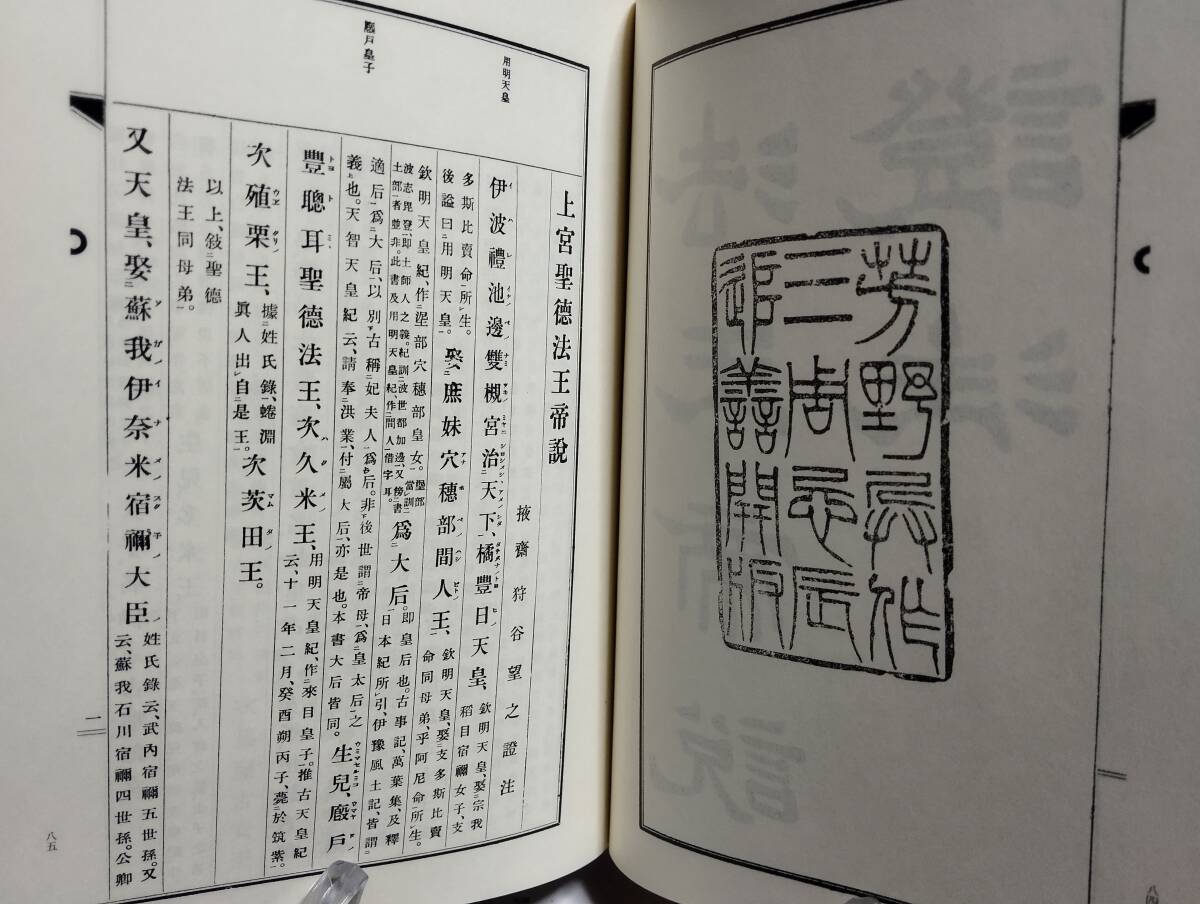 芳野
三周忌辰
追善開板
八四
用明天皇
廐戸皇子
上宮聖德法王帝說
掖齋狩谷望之證注
伊波禮池邊雙槻宮治天下、橘豐日天皇、欽明天皇、娶宗我稻目宿禰女子、支
多斯比賣命所生。後謚曰用明天皇。娶庶妹穴穗部間人王、欽明天皇、娶支多斯比賣命同母弟、乎阿尼命所生。
欽明天皇紀、作埿部穴穗部皇女。爲大后。卽皇后也。古事記、萬葉集、及釋日本紀所引、伊豫風土記皆謂
適后爲大后、以別古稱妃夫人爲后。非後世謂帝母、爲皇太后之義也。天智天皇紀云、請奉洪業、付屬大后、亦是也。本書大后皆同。生兒、廐戸
豐聰耳聖德法王、次久米王、用明天皇紀、作來目皇子。推古天皇紀云、十一年二月、癸酉朔丙子、薨於筑紫。
次殖栗王、據姓氏錄、蜷淵眞人出自是王。次茨田王。
以上、敍聖德法王同母弟。
又天皇、娶蘇我伊奈米宿禰大臣姓氏錄云、武內宿禰五世孫。又云、蘇我石川宿禰四世孫。公卿
二
八五